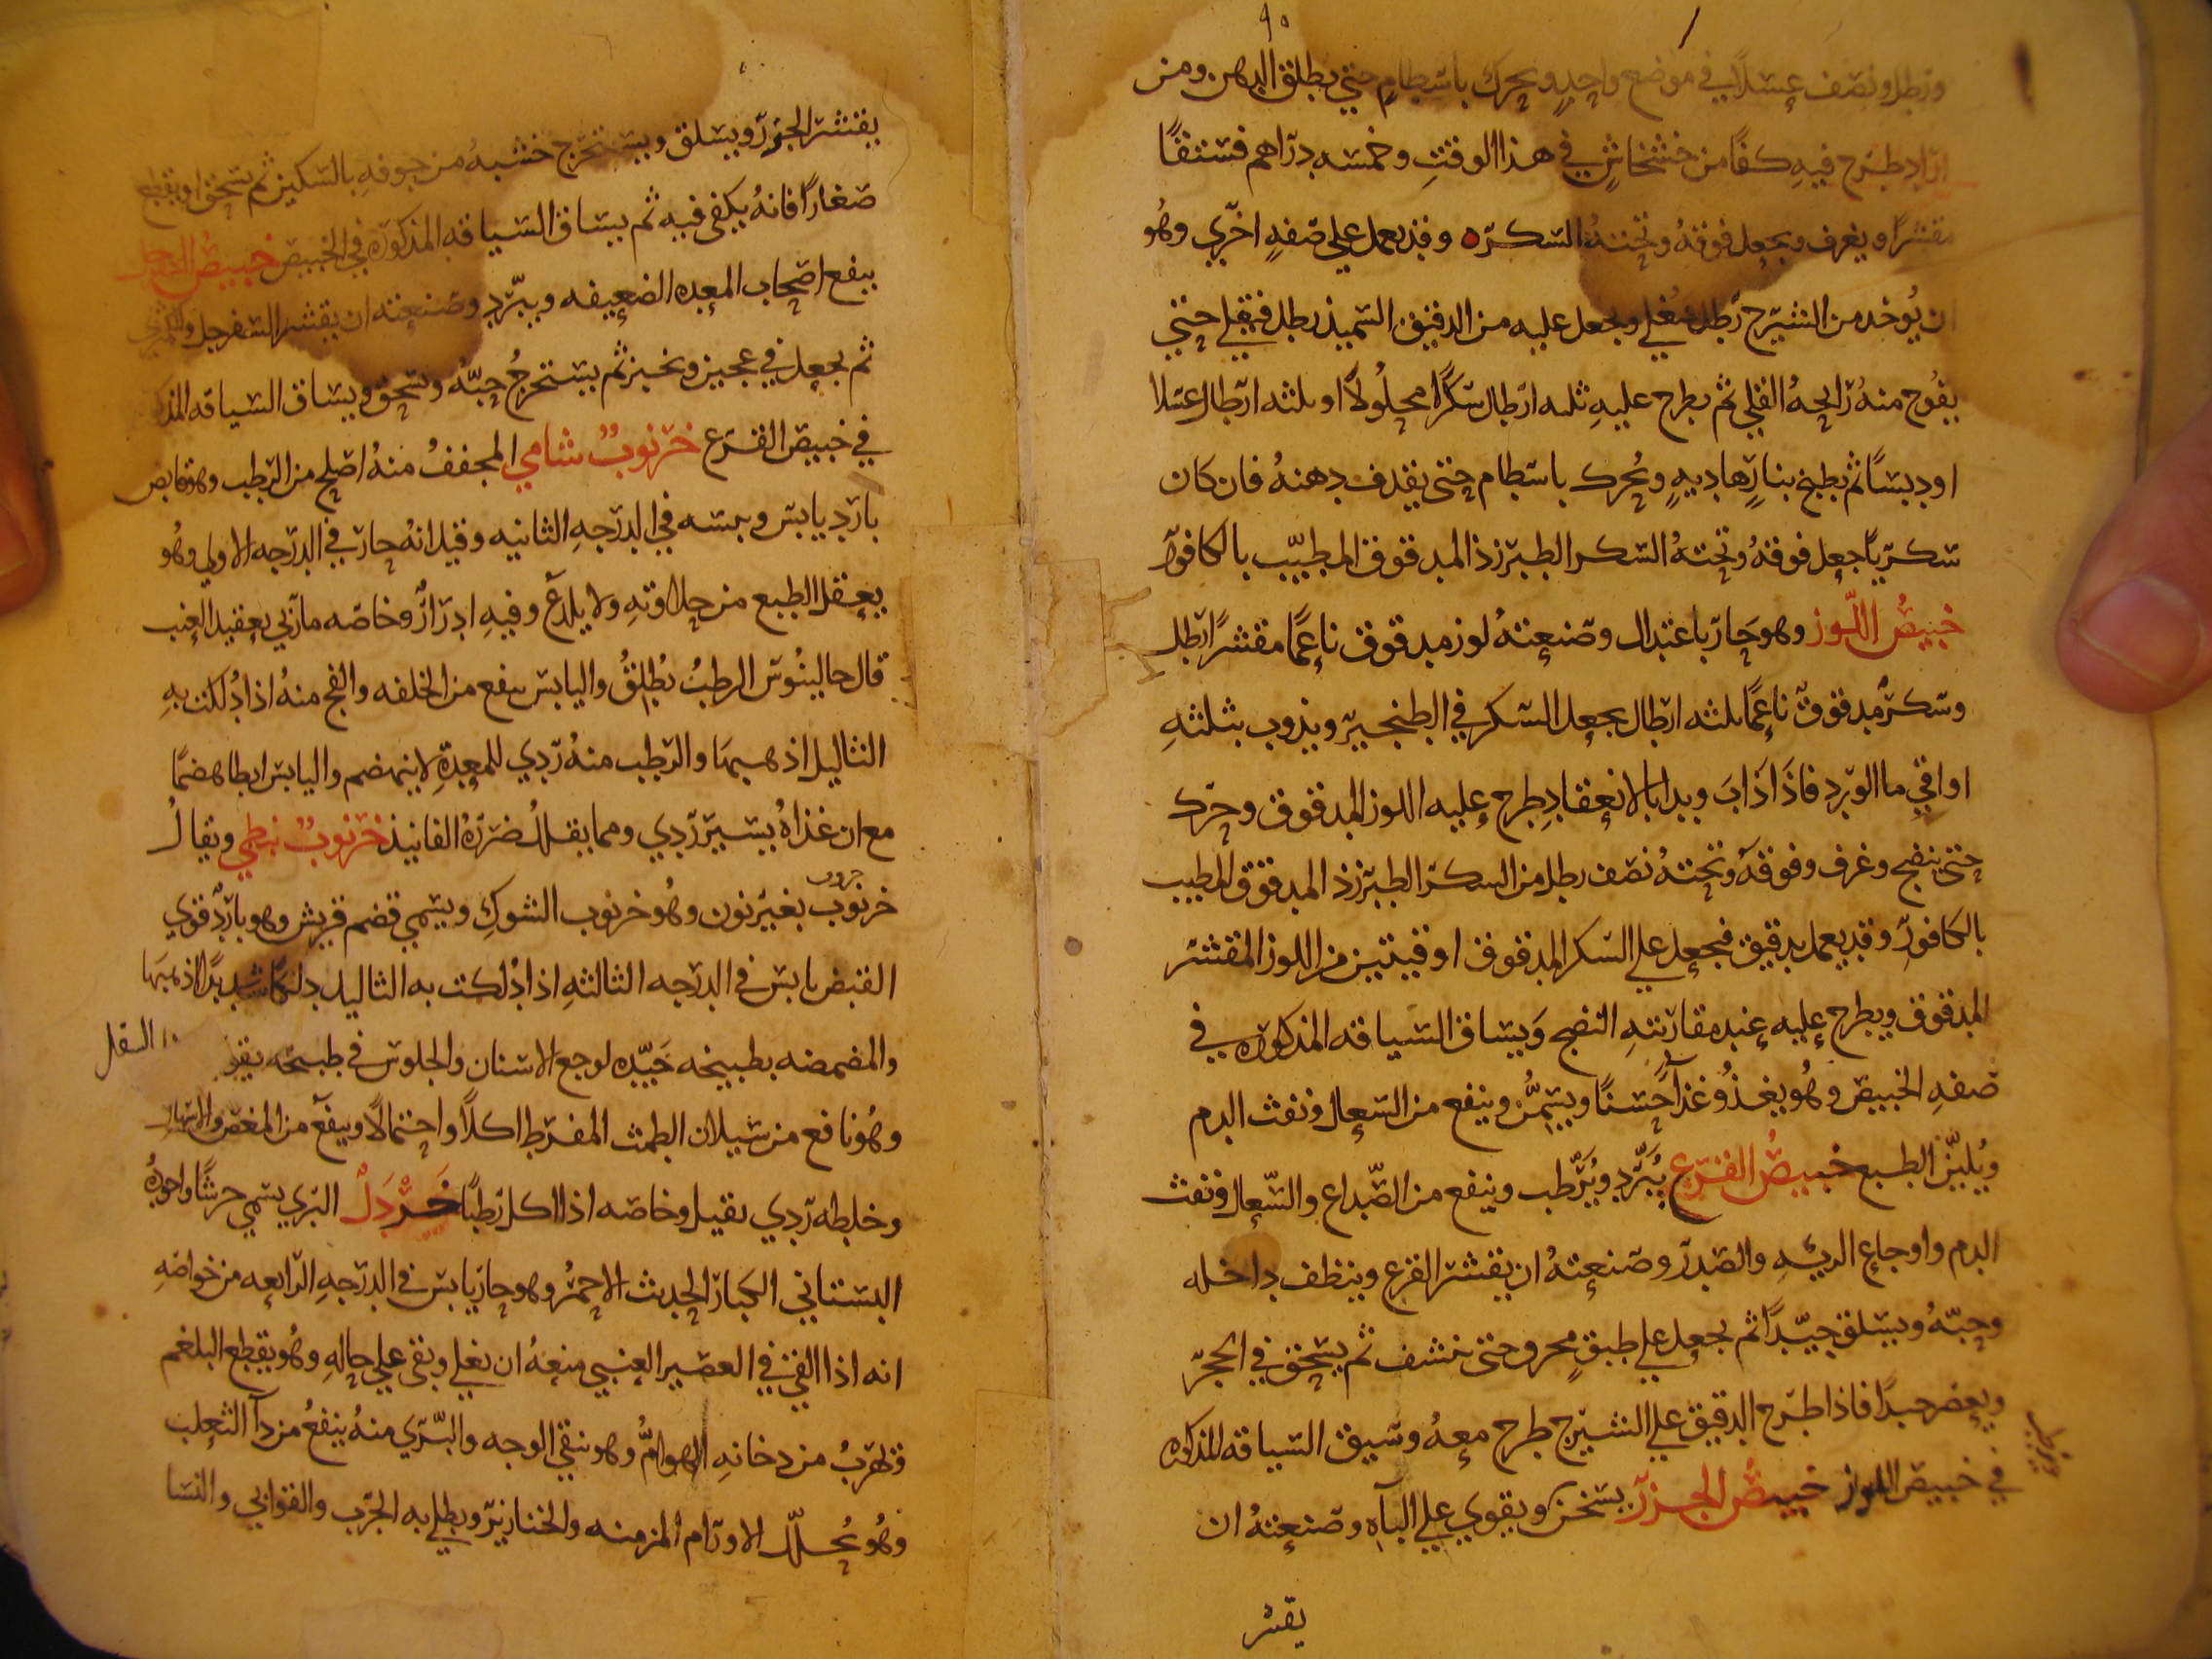 ٩٥
ورطل ونصف عسلا في موضع واحد ويحرك باسطام حتى يطلق الدهن ومن
اراد طرح فيه كفا من خشخاش في هذا الوقت وخمسه دراهم فستقا
مقشرا ويغرف ويجعل فوقه وتحته السكر وقد يعمل على صفه اخرى وهو
ان يوخد من الشيرج رطل فيغلي ويجعل عليه من الدقيق السميذ رطل فيقلى حتى
يفوح منه رايحه القلي ثم يطرح عليه ثلثه ارطال سكرا محلولا او ثلثه ارطال عسلا
او دبسا ثم يطبخ بنار هاديه ويحرك باسطام حتى يقدف دهنه فان كان
سكريا جعل فوقه وتحته السكر الطبرزذ المدقوق المطيب بالكافور
خبيص اللوز وهو حار باعتدال وصنعته لوز مدقوق ناعما مقشرا رطل
وسكر مدقوق ناعما ثلثه ارطال يجعل السكر في الطنجير ويذوب بثلثه
اواقي ما الورد فاذا ذاب وبدا بالانعقاد طرح عليه اللوز المدقوق وحرك
حتى ينضج وغرف وفوقه وتحته نصف رطل من السكر الطبرزذ المدقوق المطيب
بالكافور وقد يعمل بدقيق فيجعل على السكر المدقوق اوقيتين من اللوز المقشر
المدقوق ويطرح عليه عند مقاربته النضج ويساق السياقه المذكوره في
صفه الخبيص وهو يغذو غذآ حسنا ويسمن وينفع من السعال ونفث الدم
ويلين الطبع خبيص القرع يبرد ويرطب وينفع من الصداع والسعال ونفث
الدم واوجاع الريه والصدر وصنعته ان يقشر القرع وينظف داخله
وحبه ويسلق جيدا ثم يجعل على طبق محروق حتى ينشف ثم يسحق في الحجر
ويعصر جيدا فاذا طرح الدقيق على الشيرج طرح معه وسيق السياقه المذكوره
في خبيص اللوز خبيص الجزر يسخن ويقوي على الباه وصنعته ان
يقشر
يقشر الجزر ويسلق ويستخرج خشبه من جوفه بالسكين ثم يسحق او يقطع
صغارا فانه يكفى فيه ثم يساق السياقه المذكوره في الخبيص خبيص السفرجل
ينفع اصحاب المعده الضعيفه ويبرد وصنعته ان يقشر السفرجل
ثم يجعل في عجين ويخبز ثم يستخرج حبه ويسحق ويساق السياقه
في خبيص القرع خرنوب شامي المجفف منه اصلح من الرطب وهو قابض
بارد يابس ويبسه في الدرجه الثانيه وقيل انه حار في الدرجه الاولى وهو
يعقل الطبع من حلاوته ولا يلدع وفيه ادرار وخاصه ما ربي بعقيد العنب
قال جالينوس الرطب يطلق واليابس ينفع من الخلفه والفج منه اذا دلكت به
الثاليل اذهبها والرطب منه ردي للمعدة لا ينهضم واليابس ابطا هضما
مع ان غذاه يسير ردي ومما يقلل ضرره الفانيذ خرنوب نبطي ويقال
خروب
خرنوب بغير نون وهو خرنوب الشوك ويسمى قضم قريش وهو بارد قوي
القبض يابس في الدرجه الثالثه اذا دلكت به الثاليل دلكا شديدا اذهبها
والمضمضه بطبيخه جيده لوجع الاسنان والجلوس في طبيخه يقو السفل
وهو نافع من سيلان الطمث المفرط اكلا واحتمالا وينفع من المغص والاسهال
وخلطه ردي ثقيل وخاصه اذا اكل رطبا خردل البري يسمى حرشا واجوده
البستاني الكبار الحديث الاحمر وهو حار يابس في الدرجه الرابعه من خواصه
انه اذا القي في العصير العنبي منعه ان يغلي وبقى على حاله وهو يقطع البلغم
وتهرب من دخانه الهوام وهو ينقي الوجه والبري منه ينفع من دآ الثعلب
وهو يحلل الاورام المزمنه والخنازير ويطلى به الجرب والقوابي والنسا